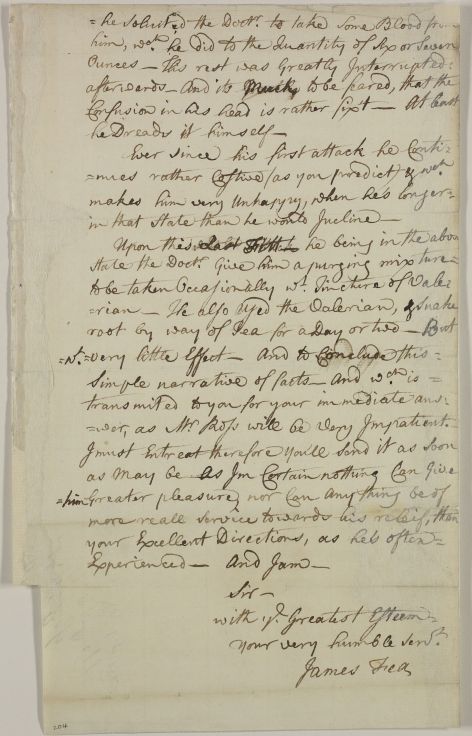 =he solicited the Doctr. to take some Blood from
him, wch. he did to the Quantity of six or Seven
Ounces — His rest was Greatly Interrupted=
afterwards — And its Much to be feared, that the
Confusion in his head is rather fixt — At least
he Dreads it himself —
Ever since his first attack he Conti=
=nues rather Costive (as you predict) & wch.
makes him very Unhappy, when he's longer=
in that State than he would Incline —
Upon this he being in the above
State the Doctr. Give him a purging mixture=
to be taken Occasionally wt. Tincture of Vale=
=rian — He also used the Valerian, & snake
root by way of Tea for a Day or two — But
=wt.=very little Effect — And to Conclude this=
Simple narrative of facts — And wch. is=
transmited to you for your immediate ans=
=wer, as Mr Ross will be very Impatient.
I must Entreat therefore you'll send it as soon
as May be As Im Certain nothing Can Give
=him Greater pleasure, nor Can Any thing be of
more reall Service towards his releif, than
your Excellent Directions, as he's often=
Experienced — And I am —
Sir —
with ye. Greatest Esteem=
Your very humble Servt.
James Fea
204